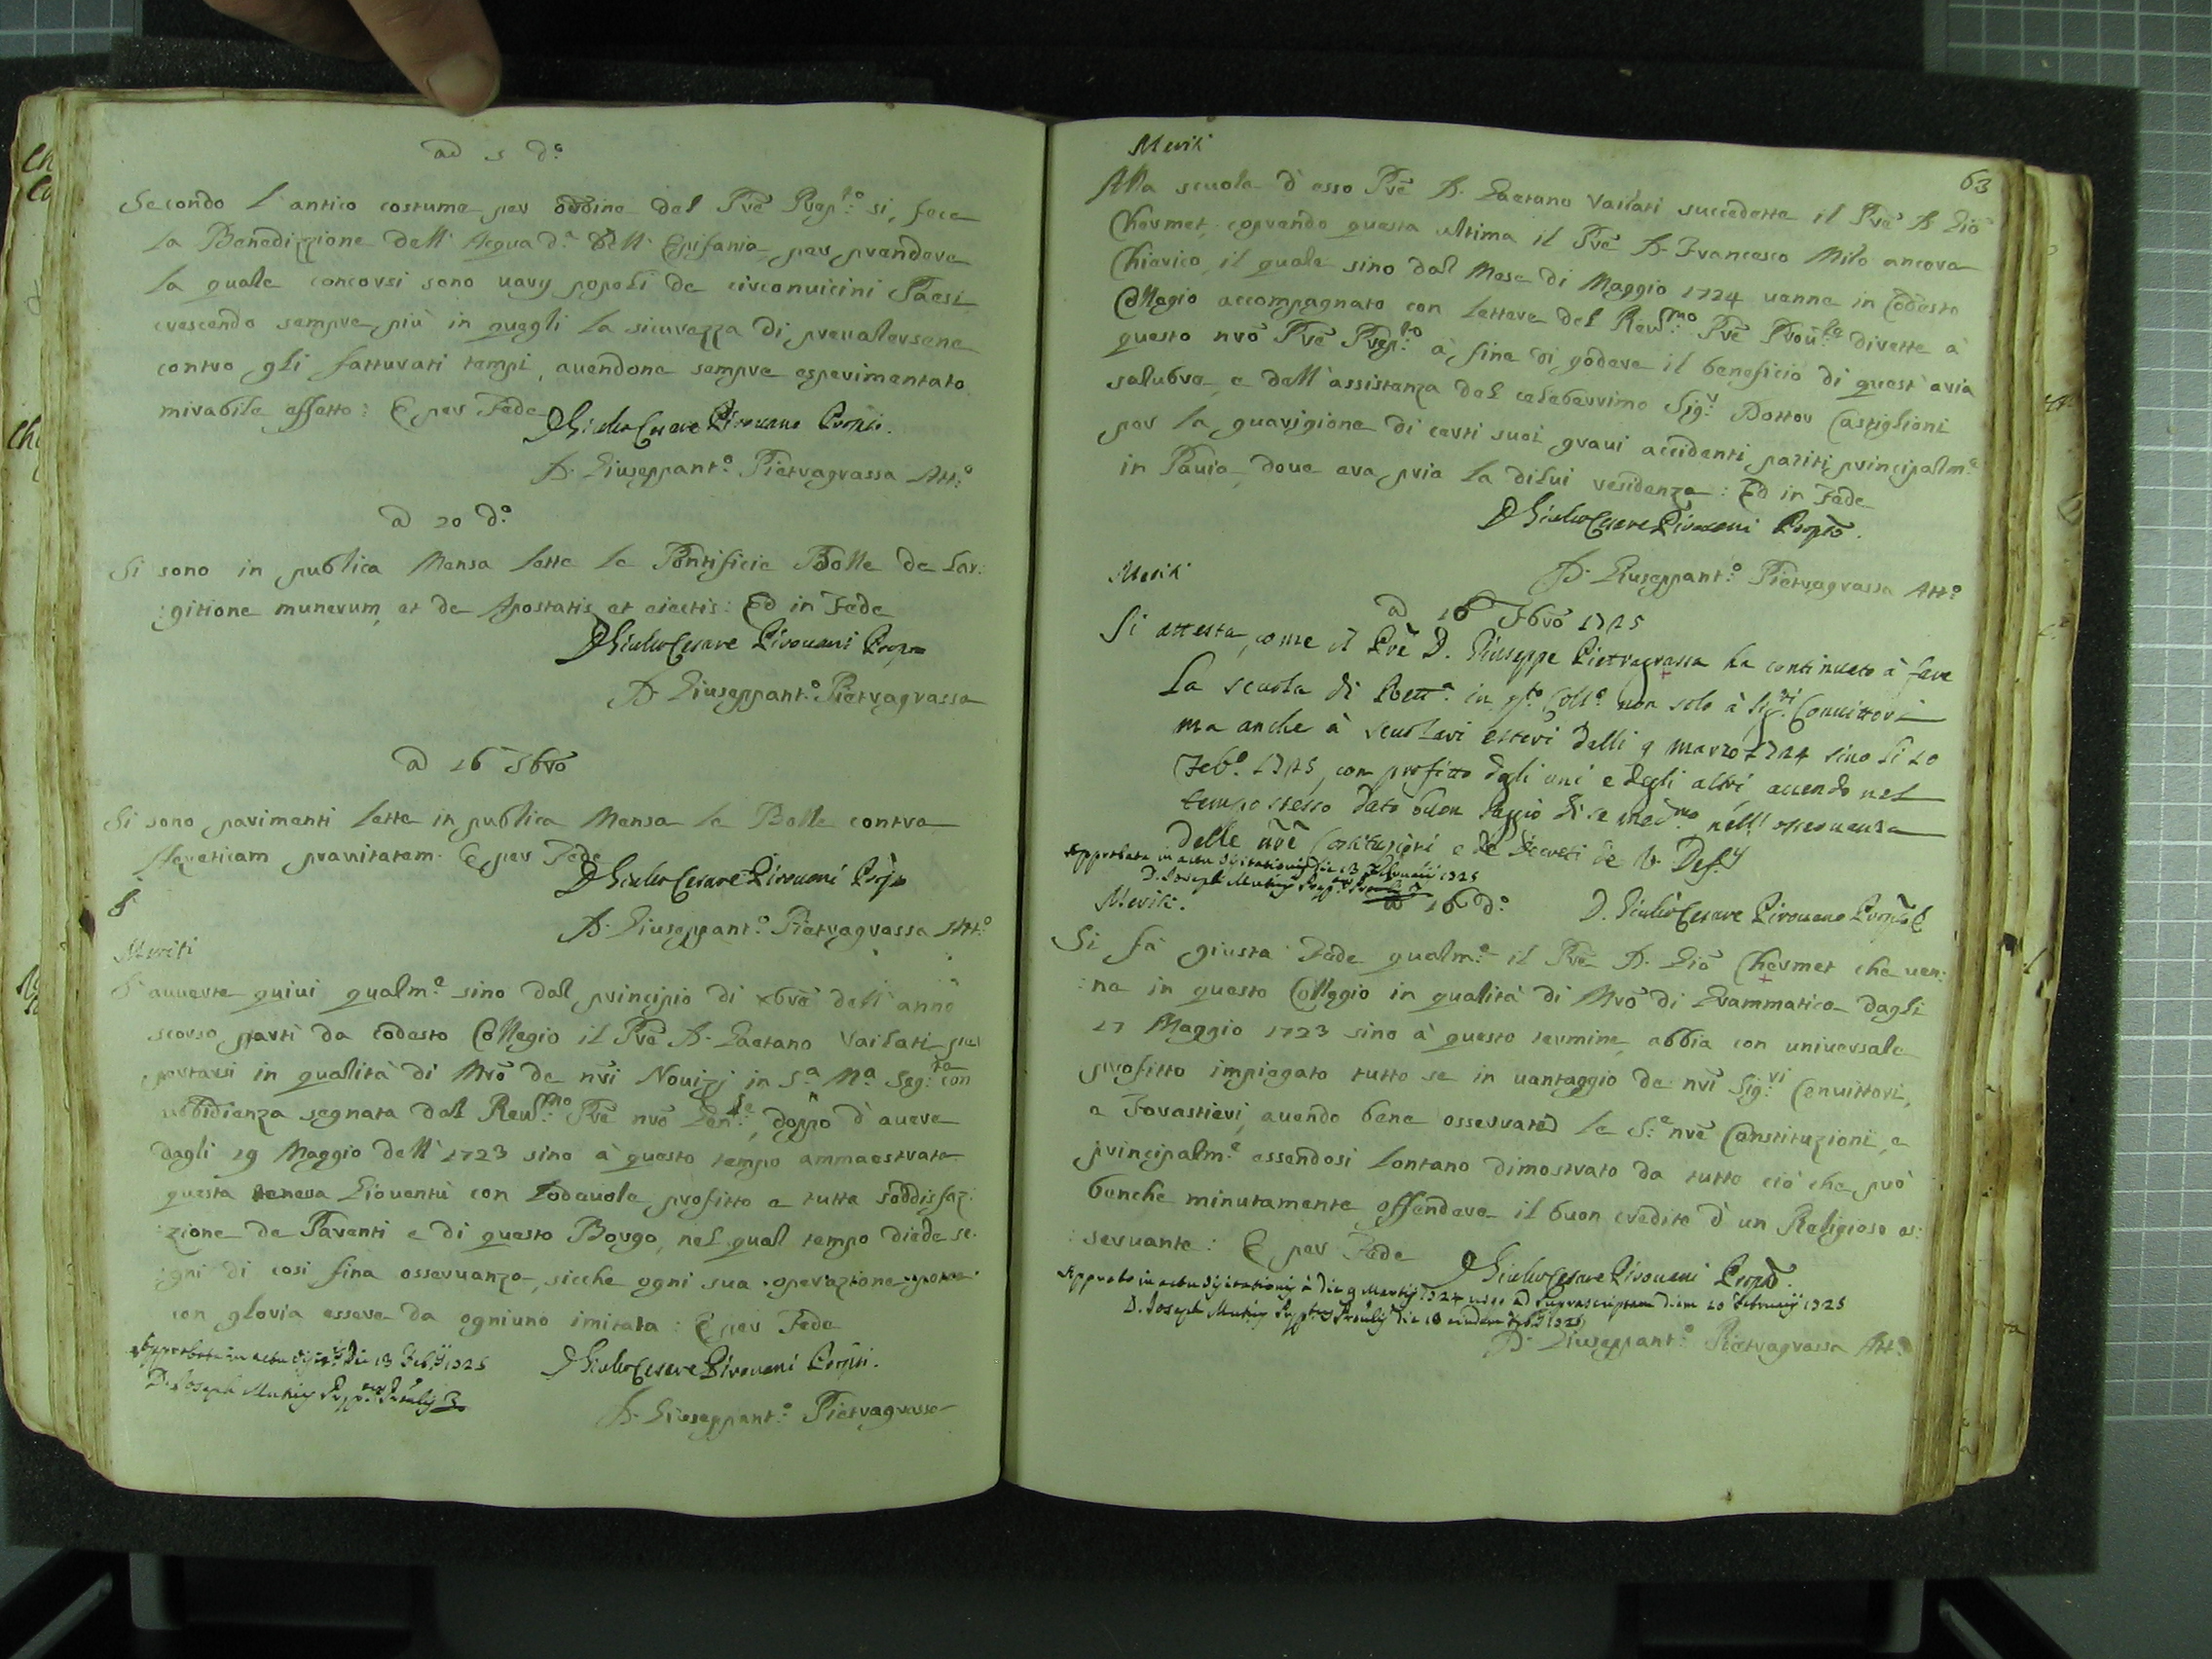 ad 5 d.o
Secondo l'antico costume per ordine del Prē Prep.to si fece
la Benedizzione dell'Acqua d.a dell'Epifania per prendere
la quale concorsi sono varij popoli de circonuicini Paesi
crescendo sempre più in quegli la sicurezza di preualersene
contro gli fatturati tempi, auendone sempre esperimentato
mirabile effetto: E per Fede
D Giulio Cesare Pirouano Prep.to
D. Giuseppant.o Pietragrassa Att.o
a 20 d.o
Si sono in publica Mensa lette le Pontificie Bolle de Lar:
:gitione munerum, et de Apostatis et eiectis: Ed in Fede
D Giulio Cesare Pirouani Prep.to
D. Giuseppant.o Pietragrassa
a 16 Fbrō
Si sono parimenti lette in publica Mensa le Bolle contra
Hereticam prauitatem. E per Fede
D Giulio Cesare Pirouani Prep.to
D. Giuseppant.o Pietragrassa Att.o
Meriti
S'auuerte quiui qualm.e sino dal principio di xbrō dell'anno
scorso partì da codesto Collegio il Prē D. Gaetano Vailati per
portarsi in qualità di Mrō de nrī Nouizj in S.a M.a Seg.ta con
ubbidienza segnata dal Reu.mo Prē nrō Gen.le, doppo d'auere
dagli 19 Maggio dell'1723 sino à questo tempo ammaestrata
questa tenera Giouentù con lodeuole profitto e tutta soddisfaz:
:zione de Parenti e di questo Borgo, nel qual tempo diede se:
:gni di cosi fina osseruanza, sicche ogni sua operazione potea
con gloria essere da ogniuno imitata: E per Fede
Approbata in actu Visit.is Die 13 Feb.ij 1725
D. Joseph Mutius Prep.tus Prouīlis
D Giulio Cesare Pirouani Prep.to
D. Giuseppant.o Pietragrassa
63
Meriti
Alla scuola d'esso Prē D. Gaetano Vailati succedette il Prē D. Giō
Chermet, coprendo questa ultima il Prē D. Francesco Milo ancora
Chierico, il quale sino dal Mese di Maggio 1724 uenne in Codesto
Collegio accompagnato con lettere del Reu.mo Prē Prou.le dirette à
questo nrō Prē Prep.to à fine di godere il beneficio di quest'aria
salubre, e dell'assistenza del celeberrimo Sig.r Dottor Castiglioni
per la guarigione di certi suoi graui accidenti patiti principalm.e
in Pauia, doue era pria la dilui residenza: Ed in Fede
D Giulio Cesare Pirouani Prep.to
D. Giuseppant.o Pietragrassa Att.o
Meriti
a 10 Fbrō 1725
Si attesta, come il Prē D. Giuseppe Pietragrassa ha continuato à fare
la scuola di Rett.a in q.to Coll.o non solo à Sig.ri Conuittori
ma anche à scuolari esteri dalli 9 marzo 1724 sino li 10
Feb.o 1725, con profitto degli uni e degli altri, auendo nel
tempo stesso dato buon saggio di se med.mo nell'osseruanza
delle nrē Costituzioni e de Decreti de V. Def.ij
Approbata in actu Visitationis die 13 Februarij 1725
D. Joseph Mutius Prep.tus Prouīlis
D. Giulio Cesare Pirouano Prep.to
Meriti.
a 16 d.o
Si fà giusta Fede qualm.e il Prē D. Giō Chermet che uen:
:ne in questo Collegio in qualità di Mrō di Grammatica dagli
27 Maggio 1723 sino à questo termine, abbia con uniuersale
profitto impiegato tutto se in uantaggio de nrī Sig.ri Conuittori,
e Forastieri, auendo bene osseruate le S.te nrē Constituzioni, e
principalm.e essendosi lontano dimostrato da tutto ciò che può
benche minutamente offendere il buon credito d'un Religioso os:
:seruante: E per Fede
D Giulio Cesare Pirouani Prep.to
Approbo in actu Visitationis à die 9 Martij 1724 usq. ad suprascriptam diem 10 Februarij 1725
D. Joseph Mutius Prep.tus Prouīlis die 13 eiusdem Feb.ij 1725
D. Giuseppant.o Pietragrassa Att.o